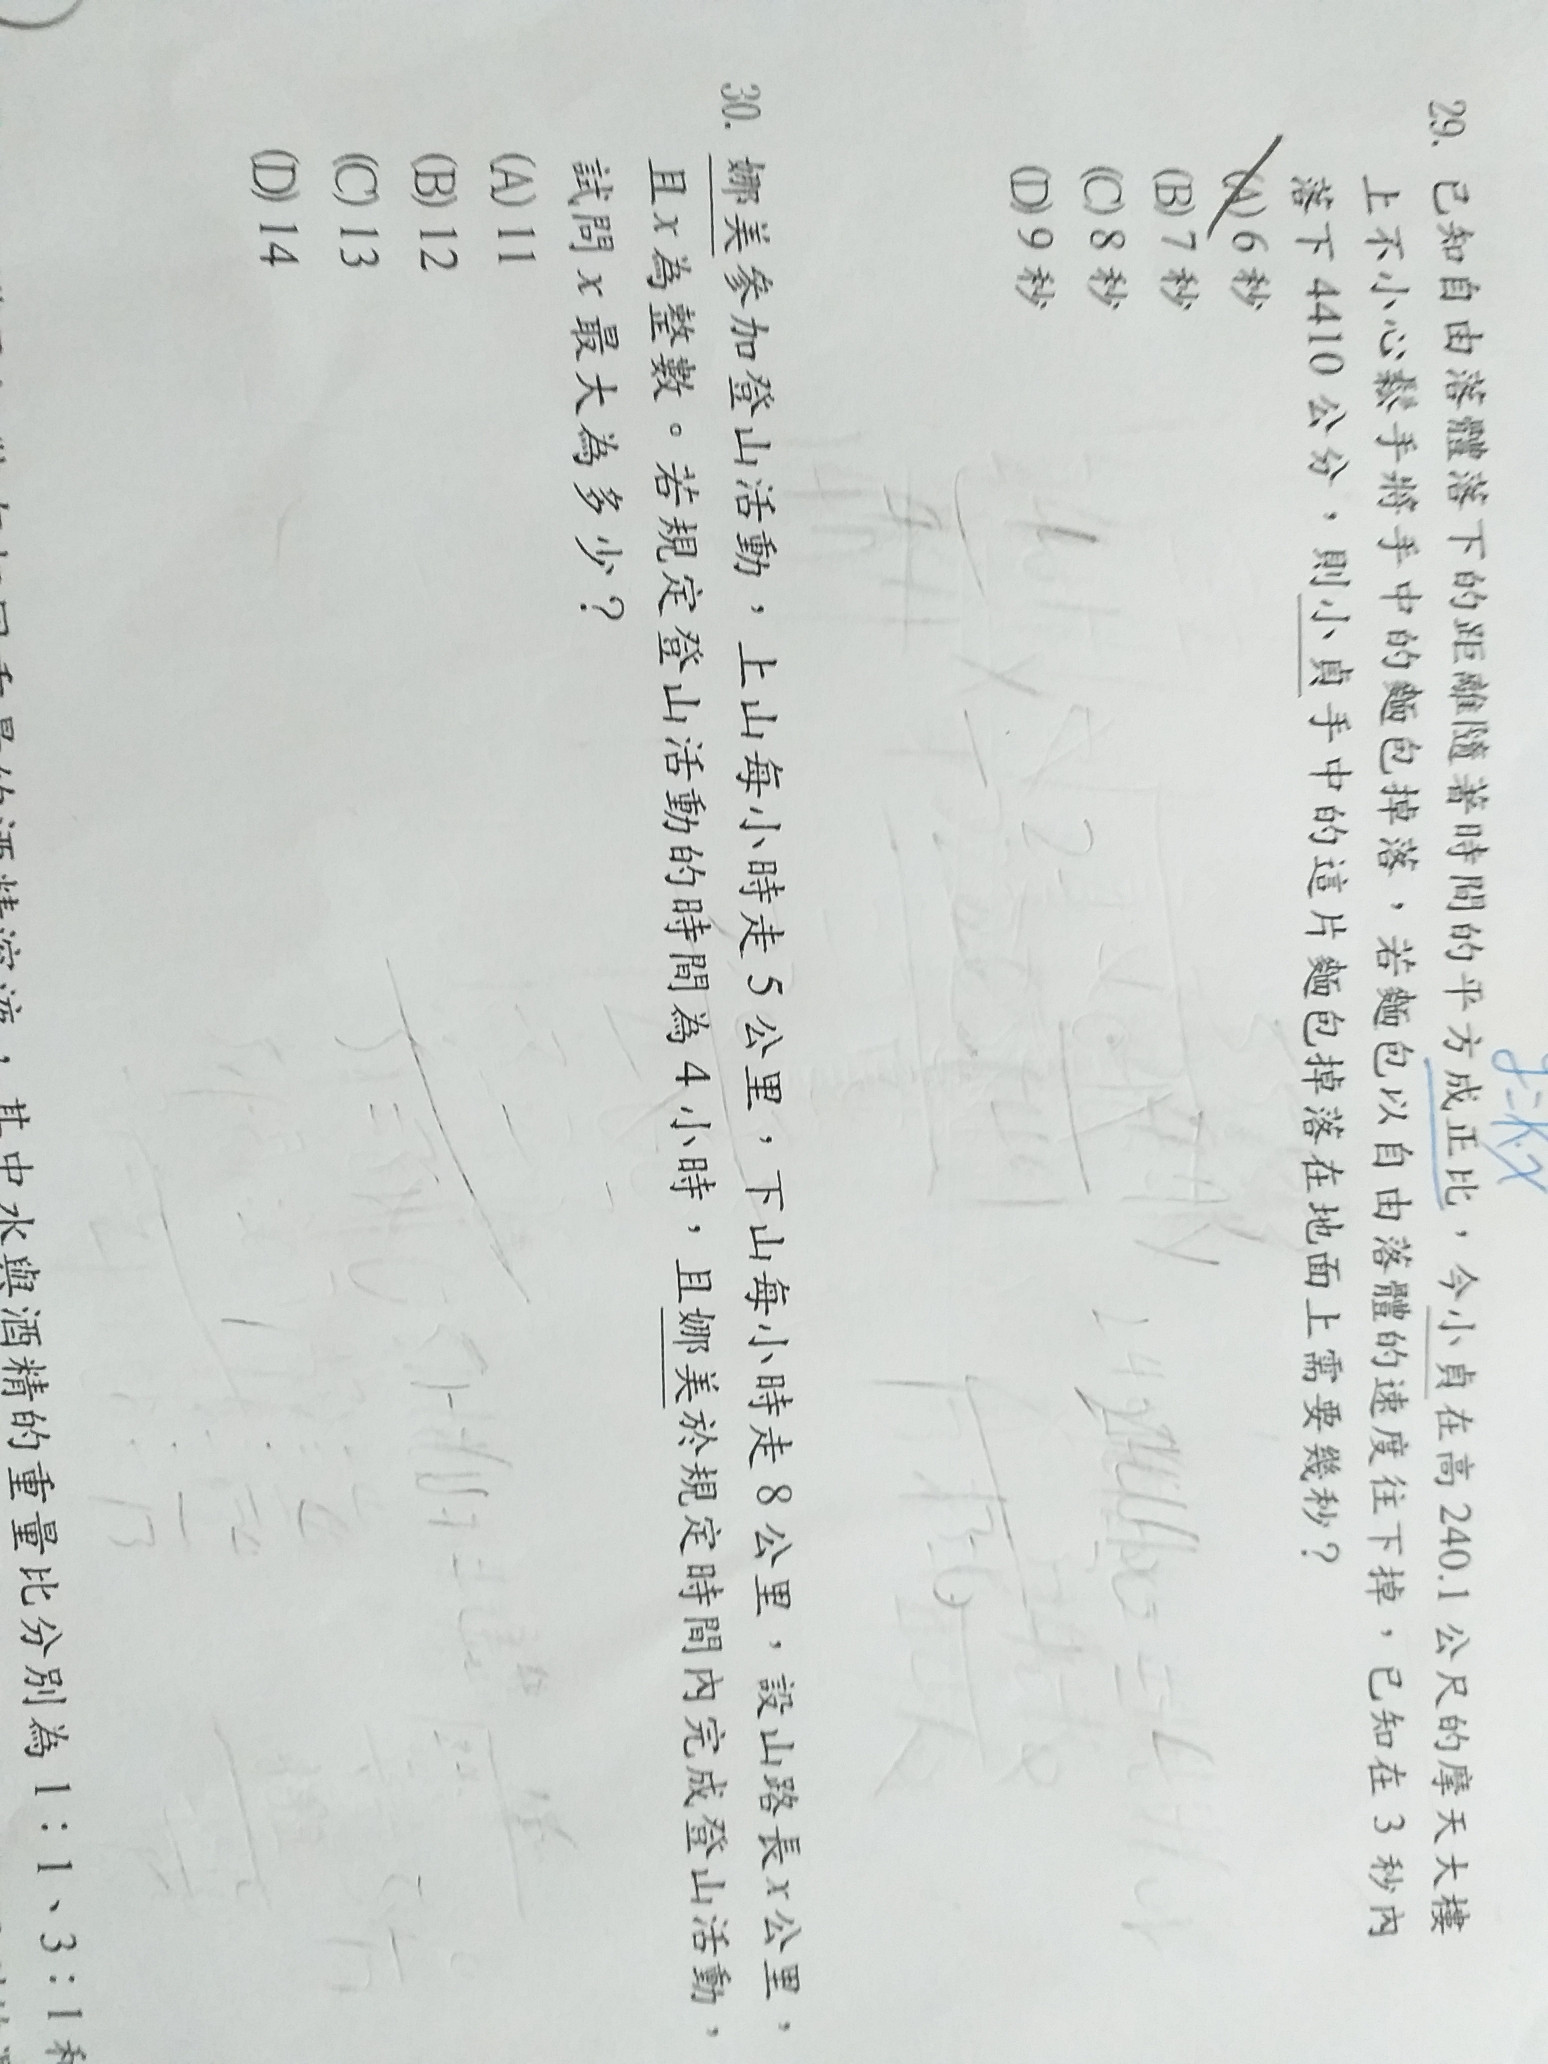 y=k·x
29. 已知自由落體落下的距離隨著時間的平方成正比，今小貞在高 240.1 公尺的摩天大樓
上不小心鬆手將手中的麵包掉落，若麵包以自由落體的速度往下掉，已知在 3 秒內
落下 4410 公分，則小貞手中的這片麵包掉落在地面上需要幾秒？
(A) 6 秒
(B) 7 秒
(C) 8 秒
(D) 9 秒
30. 娜美參加登山活動，上山每小時走 5 公里，下山每小時走 8 公里，設山路長 x 公里，
且 x 為整數。若規定登山活動的時間為 4 小時，且娜美於規定時間內完成登山活動，
試問 x 最大為多少？
(A) 11
(B) 12
(C) 13
(D) 14
酒精溶液，其中水與酒精的重量比分別為 1：1、3：1 和